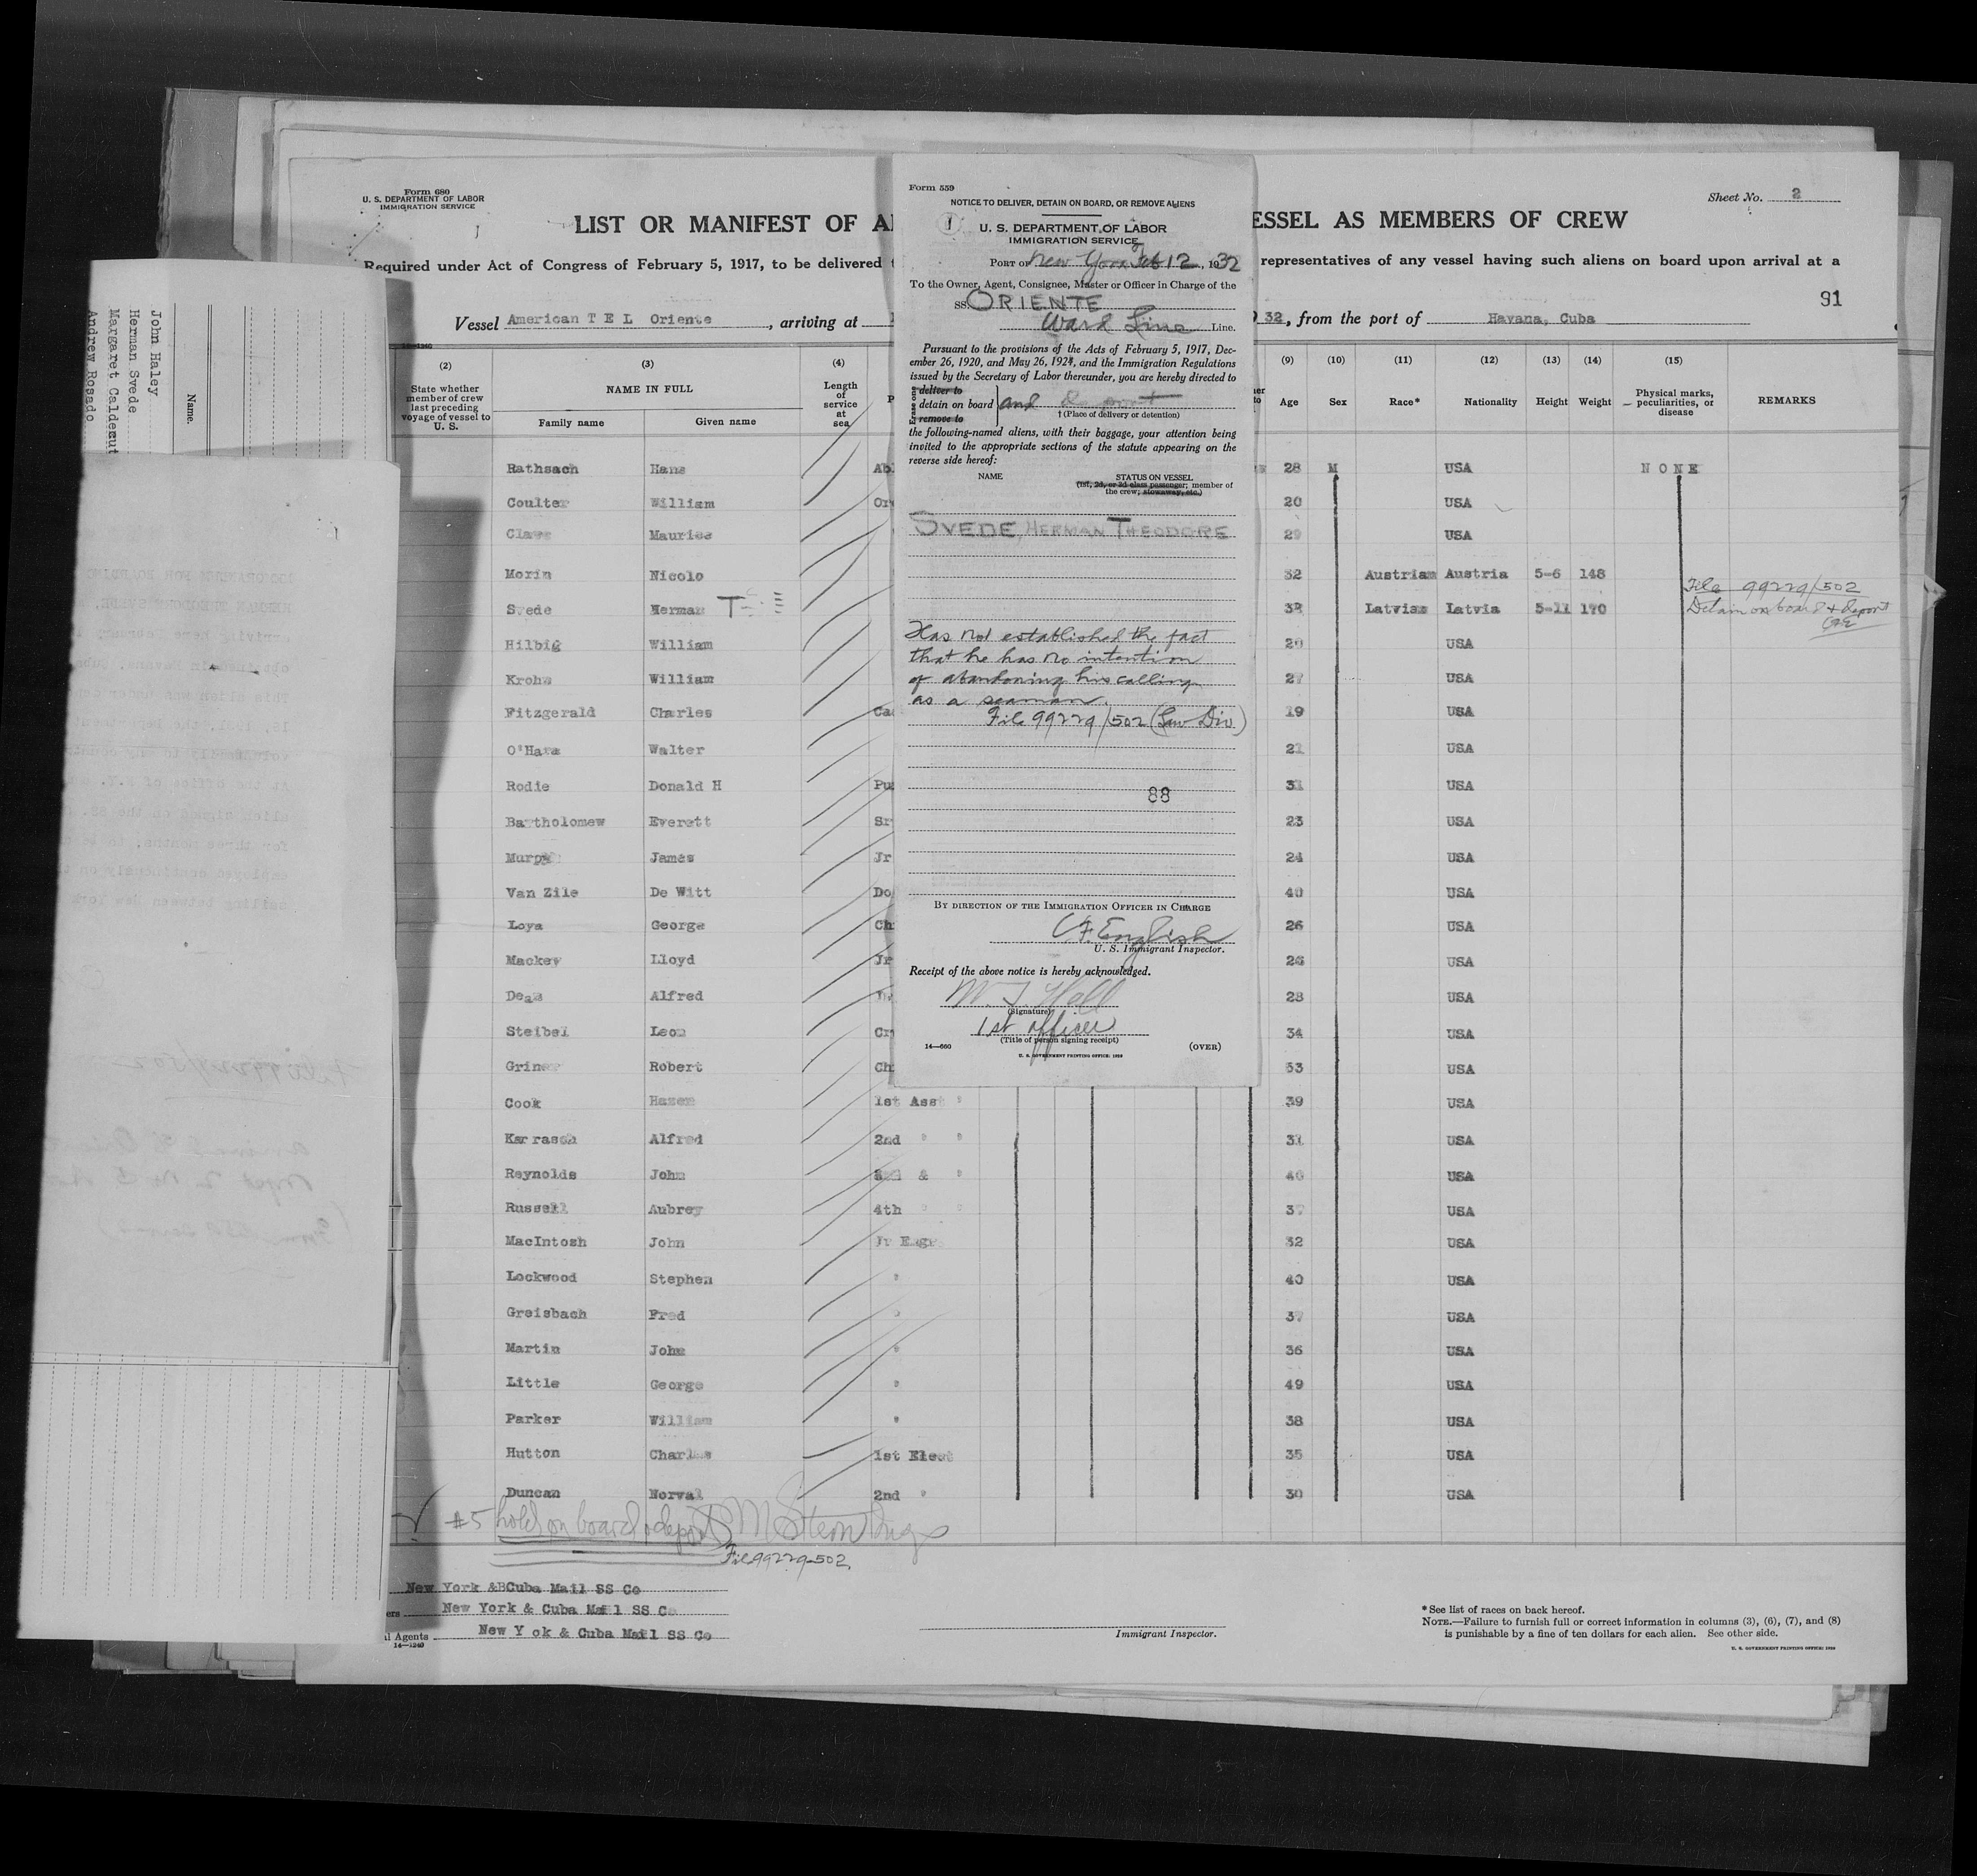 Form 680
U. S. DEPARTMENT OF LABOR
IMMIGRATION SERVICE
Sheet No. 2
LIST OR MANIFEST OF AL
ESSEL AS MEMBERS OF CREW
Required under Act of Congress of February 5, 1917, to be delivered t
representatives of any vessel having such aliens on board upon arrival at a
91
Vessel American T E L Oriente, arriving at
32, from the port of Havana, Cuba
14-1240
(2) (3) (4) (9) (10) (11) (12) (13) (14) (15)
State whether member of crew last preceding voyage of vessel to U. S.
NAME IN FULL
Family name Given name
Length of service at sea
Age Sex Race* Nationality Height Weight Physical marks, peculiarities, or disease REMARKS
Rathsach Hans Ab 28 M USA NONE
Coulter William 20 USA
Maurice 29 USA
Morin Nicolo 32 Austrian Austria 5-6 148
File 99229/502
Svede Herman T 38 Latvian Latvia 5-11 170 Detain on board & deport
Hilbig William 20 USA
Krohn William 27 USA
Fitzgerald Charles Ca 19 USA
O'Hara Walter 21 USA
Rodie Donald H Pu 31 USA
Bartholomew Everett Sr 23 USA
Murphy James Jr 24 USA
Van Zile De Witt Do 40 USA
Loya George Ch 26 USA
Mackey Lloyd Jr 26 USA
Dean Alfred 23 USA
Steibel Leon Cr 34 USA
Griner Robert Ch 53 USA
Cook Hazen 1st Asst " 39 USA
Karrasch Alfred 2nd " " 31 USA
Reynolds John & " 46 USA
Russell Aubrey 4th " " 37 USA
MacIntosh John Jr Engr 32 USA
Lockwood Stephen " 40 USA
Greisbach Fred " 37 USA
Martin John " 36 USA
Little George " 49 USA
Parker William " 38 USA
Hutton Charles 1st Elect 35 USA
Duncan Norval 2nd " 30 USA
#5 hold on board & deport M Stern Insp
File 99229-502.
New York &BCuba Mail SS Co
ers New York & Cuba Mail SS Co
l Agents New Y ok & Cuba Mail SS Co
14-1240
Immigrant Inspector.
* See list of races on back hereof.
NOTE.—Failure to furnish full or correct information in columns (3), (6), (7), and (8)
is punishable by a fine of ten dollars for each alien. See other side.
U. S. GOVERNMENT PRINTING OFFICE: 1929
Form 559
NOTICE TO DELIVER, DETAIN ON BOARD, OR REMOVE ALIENS
1
U. S. DEPARTMENT OF LABOR
IMMIGRATION SERVICE
PORT OF New York Feb 12, 1932
To the Owner, Agent, Consignee, Master or Officer in Charge of the
SS. ORIENTE
Ward Line Line.
Pursuant to the provisions of the Acts of February 5, 1917, Dec-
ember 26, 1920, and May 26, 1924, and the Immigration Regulations
issued by the Secretary of Labor thereunder, you are hereby directed to
Erase one
deliver to
detain on board and deport
remove to
† (Place of delivery or detention)
the following-named aliens, with their baggage, your attention being
invited to the appropriate sections of the statute appearing on the
reverse side hereof:
NAME STATUS ON VESSEL
(1st, 2d, or 3d class passenger; member of
the crew; stowaway, etc.)
SVEDE, HERMAN THEODORE
Has not established the fact
that he has no intention
of abandoning his calling
as a seaman.
File 99229/502 (Law Div)
88
BY DIRECTION OF THE IMMIGRATION OFFICER IN CHARGE
C F. English
U. S. Immigrant Inspector.
Receipt of the above notice is hereby acknowledged.
(Signature)
1st officer
(Title of person signing receipt)
14—660
(OVER)
U. S. GOVERNMENT PRINTING OFFICE: 1929
Name.
John Haley
Herman Svede
Margaret Caldeaut
Andrew Rosado